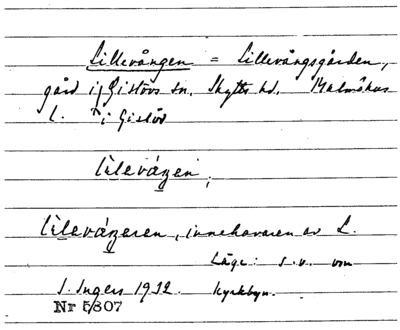 Lillevången = Lillevångsgården,
gård i Gislövs sn. Skytts hd. Malmöhus
L. i Gislöv
lilevåŋen;
lilevåŋeren, innehavaren av L.
Läge: s.v. om
I. Ingers 1932. kyrkbyn.
Nr 5/807